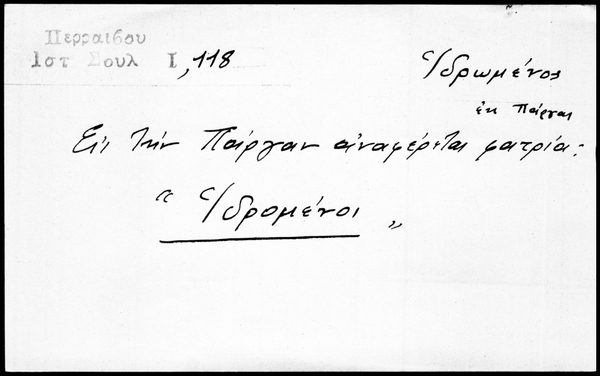 Περραιβου
Ιστ Σουλ Ι, 118
Ἱδρωμένος
ἐκ Πάργας
Εἰς τὴν Πάργαν ἀναφέρεται φατρία:
“ Ἱδρομένοι „